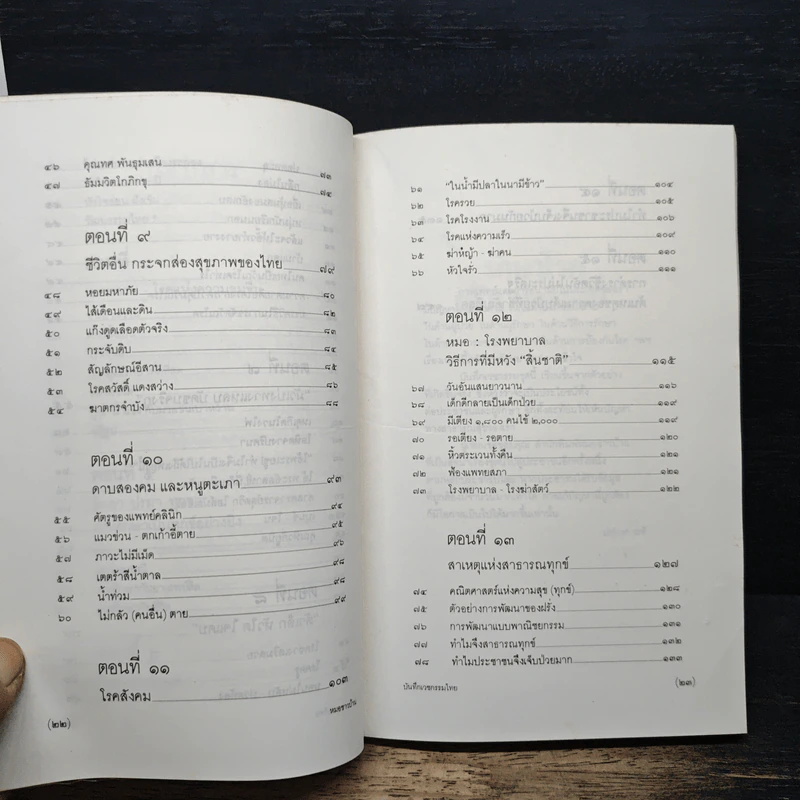 ๔๖ คุณทศ พันธุมเสน ๗๓
๔๗ ธัมมวิตโกภิกขุ ๗๔
ตอนที่ ๙
ชีวิตอื่น กระจกส่องสุขภาพของไทย ๗๙
๔๘ หอยมหาภัย ๘๐
๔๙ ไส้เดือนและดิน ๘๒
๕๐ แก๊งดูดเลือดตัวจริง ๘๓
๕๑ กระจับดิบ ๘๔
๕๒ สัญลักษณ์อีสาน ๘๕
๕๓ โรคสวัสดิ์ แดงสว่าง ๘๖
๕๔ ฆาตกรจำบัง ๘๘
ตอนที่ ๑๐
ดาบสองคม และหนูตะเภา ๙๓
๕๕ ศัตรูของแพทย์คลินิก ๙๔
๕๖ แมวข่วน - ตกเก้าอี้ตาย ๙๕
๕๗ ภาวะไม่มีเม็ด ๙๖
๕๘ เตตร้าสีน้ำตาล ๙๘
๕๙ น้ำท่วม ๙๘
๖๐ ไม่กลัว (คนอื่น) ตาย ๙๙
ตอนที่ ๑๑
โรคสังคม ๑๐๓
(๒๒) หมอชาวบ้าน
๖๑ "ในน้ำมีปลาในนามีข้าว" ๑๐๔
๖๒ โรครวย ๑๐๕
๖๓ โรคโรงงาน ๑๐๖
๖๔ โรคแห่งความเร็ว ๑๐๙
๖๕ ฆ่าหญ้า - ฆ่าคน ๑๑๐
๖๖ หัวใจรั่ว ๑๑๑
ตอนที่ ๑๒
หมอ : โรงพยาบาล
วิธีการที่มีหวัง "สิ้นชาติ" ๑๑๕
๖๗ วันอันแสนยาวนาน ๑๑๖
๖๘ เด็กดีกลายเป็นเด็กป่วย ๑๑๙
๖๙ มีเตียง ๑,๘๐๐ คนใช้ ๒,๐๐๐ ๑๑๙
๗๐ รอเตียง - รอตาย ๑๒๐
๗๑ หิ้วตระเวนทั้งคืน ๑๒๑
๗๒ ฟ้องแพทยสภา ๑๒๑
๗๓ โรงพยาบาล - โรงฆ่าสัตว์ ๑๒๒
ตอนที่ ๑๓
สาเหตุแห่งสาธารณทุกข์ ๑๒๗
๗๔ คณิตศาสตร์แห่งความสุข (ทุกข์) ๑๒๘
๗๕ ตัวอย่างการพัฒนาของฝรั่ง ๑๓๐
๗๖ การพัฒนาแบบพาณิชยกรรม ๑๓๑
๗๗ ทำไมจึงสาธารณทุกข์ ๑๓๒
๗๘ ทำไมประชาชนจึงเจ็บป่วยมาก ๑๓๓
บันทึกเวชกรรมไทย (๒๓)